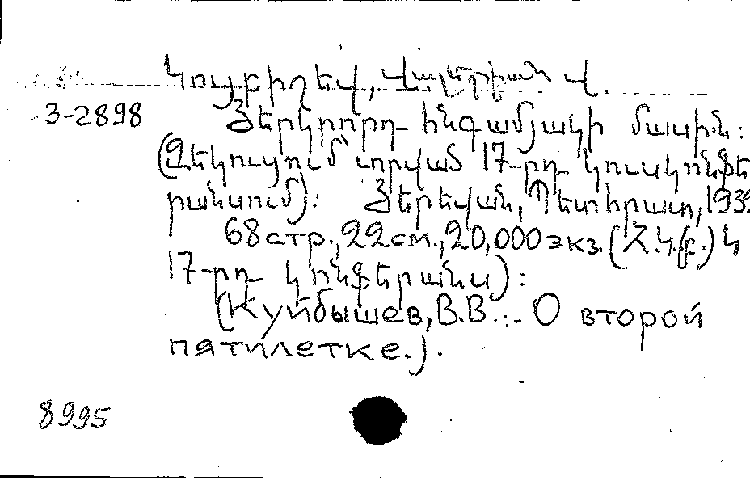 Կույբիշեվ, Վալերիան Վ.
3-2898
Յերկրորդ հնգամյակի մասին:
(Զեկուցում՝ տրված 17-րդ կուսկոնֆե
րանսում): Յերեվան, Պետհրատ, 1932
68 стр., 22 см., 20,000 экз. (Հ.Կ.(բ.)Կ
17-րդ կոնֆերանս):
(Куйбышев, В.В. :- О второй
пятилетке.).
8995